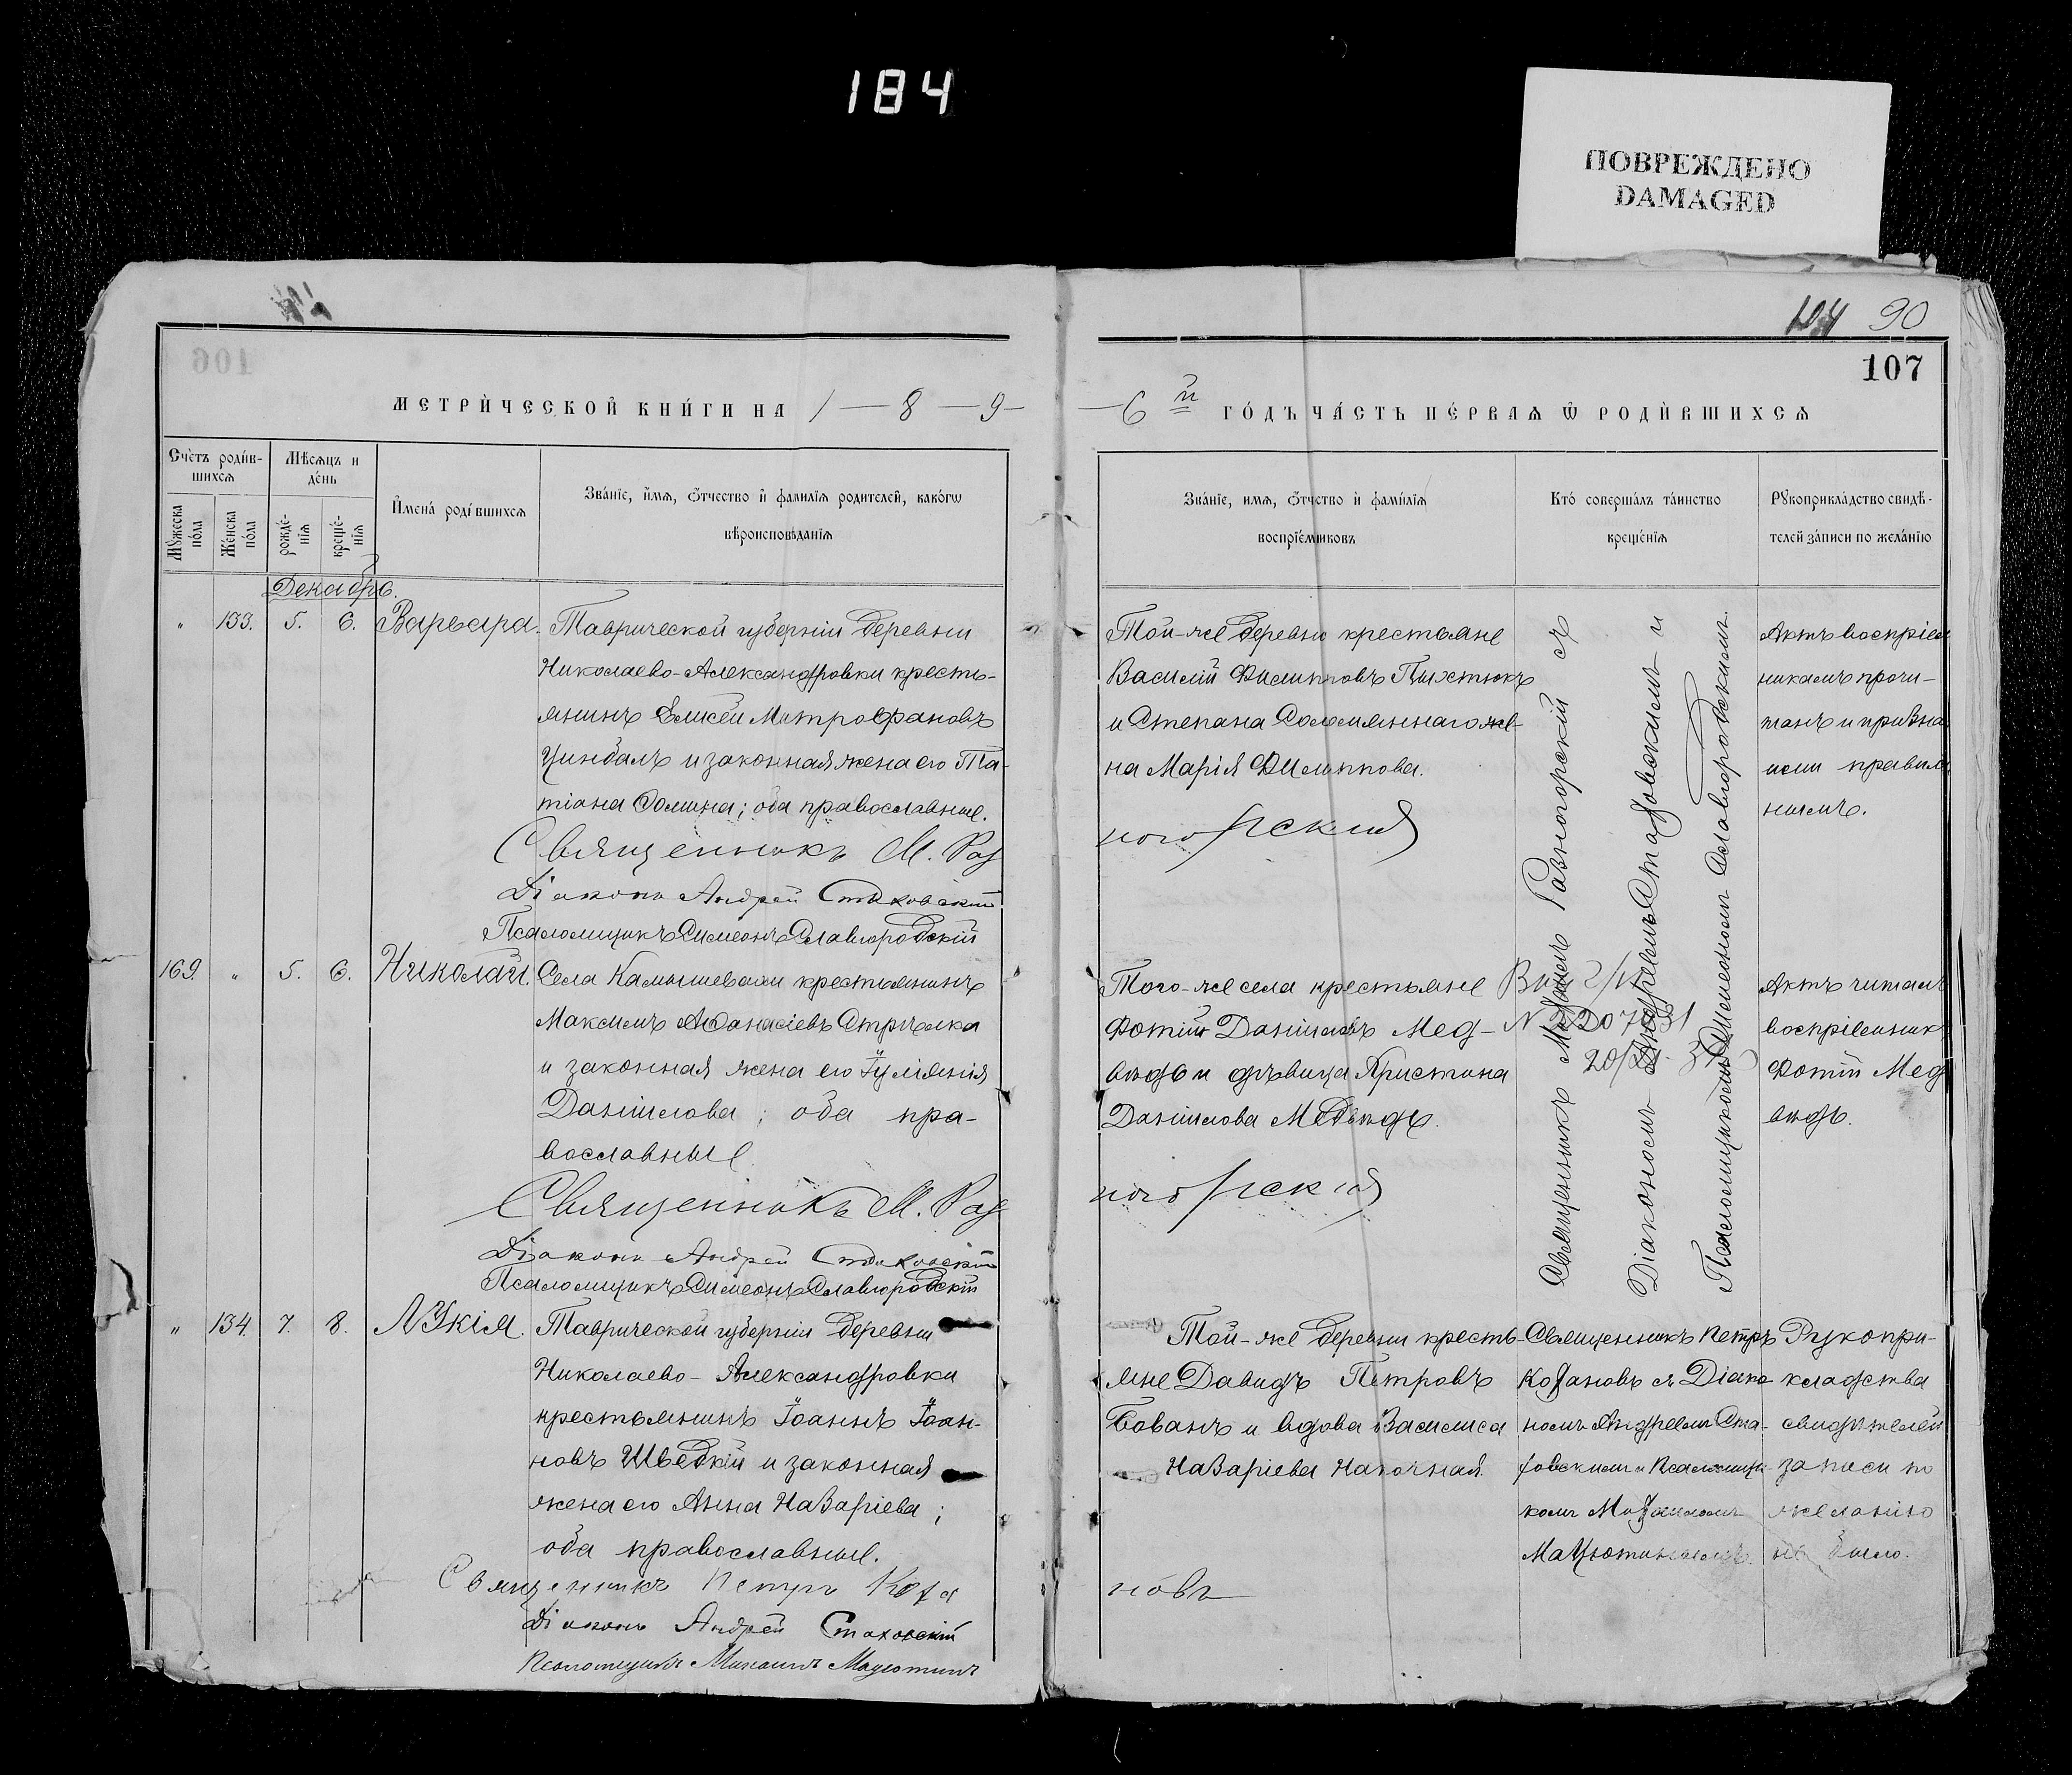 184
ПОВРЕЖДЕНО
DAMAGED
104 90
106
107
МЕТРИ́ЧЕСКОЙ КНИ́ГИ НА 1 — 8 — 9 —
— 6 й ГО́ДЪ ЧА́СТЬ ПЕ́РВАѦ Ѿ РОДИ́ВШИХСѦ
Счетъ роди́в-
шихсѧ
Мꙋжеска
по́ла
Же́нска
по́ла
Мѣсѧцъ и
де́нь
рожде́-
нїѧ
креще́-
нїѧ
И҆мена́ роди́вшихсѧ
Зва́нїе, и҆́мѧ, ѻ҆́тчество и҆ фами́лїѧ родителей, како́гѡ
вѣроисповѣ́данїѧ
Зва́нїе, имѧ, ѻ҆́тчество и҆ фами́лїѧ
воспрїе́мниковъ
Кто́ соверша́лъ та́инство
креще́нїѧ
Рꙋкоприкла́дство свидѣ́-
телей за́писи по жела́нїю
Декабрь.
" 133. 5. 6. Варвара.
Таврической губерніи деревни
Николаево-Александровки кресть-
янинъ Елисей Митрофановъ
Цимбалъ и законная жена его Та-
тіана Фомина; оба православные.
Священникъ М. Раз
Діаконъ Андрей Стаховскій
Псаломщикъ Симеонъ Славгородскій
Той-же деревни крестьяне
Василій Филипповъ Пихтюкъ
и Степана Соломяннаго же-
на Марія Филиппова.
ногорскій
Священникъ Михаилъ Разногорскій съ
Діакономъ Андреемъ Стаховскимъ и
Псаломщикомъ Симеономъ Славгородскимъ.
Актъ воспріем
никамъ прочи-
танъ и призна
ли правиль
нымъ.
169. " 5. 6. Николай.
Села Камышевахи крестьянинъ
Максимъ Аѳанасіевъ Стрѣлка
и законная жена его Іуліанія
Даніилова; оба пра-
вославные
Священникъ М. Раз
Діаконъ Андрей Стаховскій
Псаломщикъ Симеонъ Славгородскій
Того-же села крестьяне
Фотій Даніиловъ Мед-
вѣдь и дѣвица Христина
Даніилова Медвѣдь.
ногорскій
Актъ читалъ
воспріемник
Фотій Мед
вѣдь.
" 134. 7. 8. Лукія.
Таврической губерніи деревни
Николаево-Александровки
крестьянинъ Іоаннъ Іоан-
новъ Шведкій и законная
жена его Анна Назаріева;
оба православные.
Священникъ Петръ Коха
Діаконъ Андрей Стаховскій
Псаломщикъ Михаилъ Мацютинъ
Той-же деревни кресть-
яне Давидъ Петровъ
Бованъ и вдова Василиса
Назаріева Накочная.
новъ
Священникъ Петръ
Кохановъ съ Діако-
номъ Андреемъ Ста-
ховскимъ и Псаломщи-
комъ Михаиломъ
Мацютинымъ.
Рукопри-
кладства
свидѣтелей
записи по
желанію
не было.